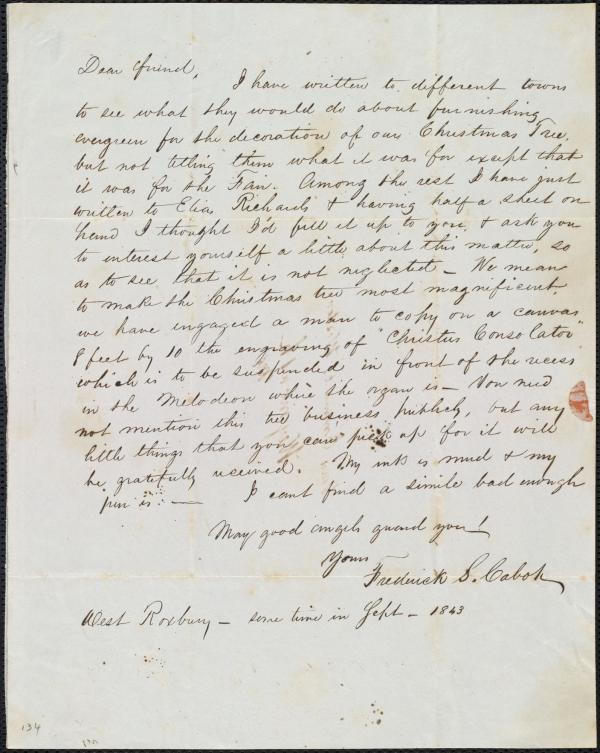 Dear friend,
I have written to different towns
to see what they would do about furnishing
evergreen for the decoration of our Christmas Tree,
but not telling them what it was for except that
it was for the Fair. Among the rest I have just
written to Elias Richards & having half a sheet on
hand I thought I'd fill it up to you & ask you
to interest yourself a little about this matter, so
as to see that it is not neglected - We mean
to make the Christmas tree most magnificent.
we have engaged a man to copy on a canvas
8 feet by 10 the engraving of "Christus Consolator"
which is to be suspended in front of the recess
in the Melodeon where the organ is - You need
not mention this tree business publicly, but any
little things that you can pick up for it will
be gratefully received. My ink is mud & my
pen is :— I cant find a simile bad enough
May good angels guard you!
Yours
Frederick S. Cabot
West Roxbury - some time in Sept - 1843
134